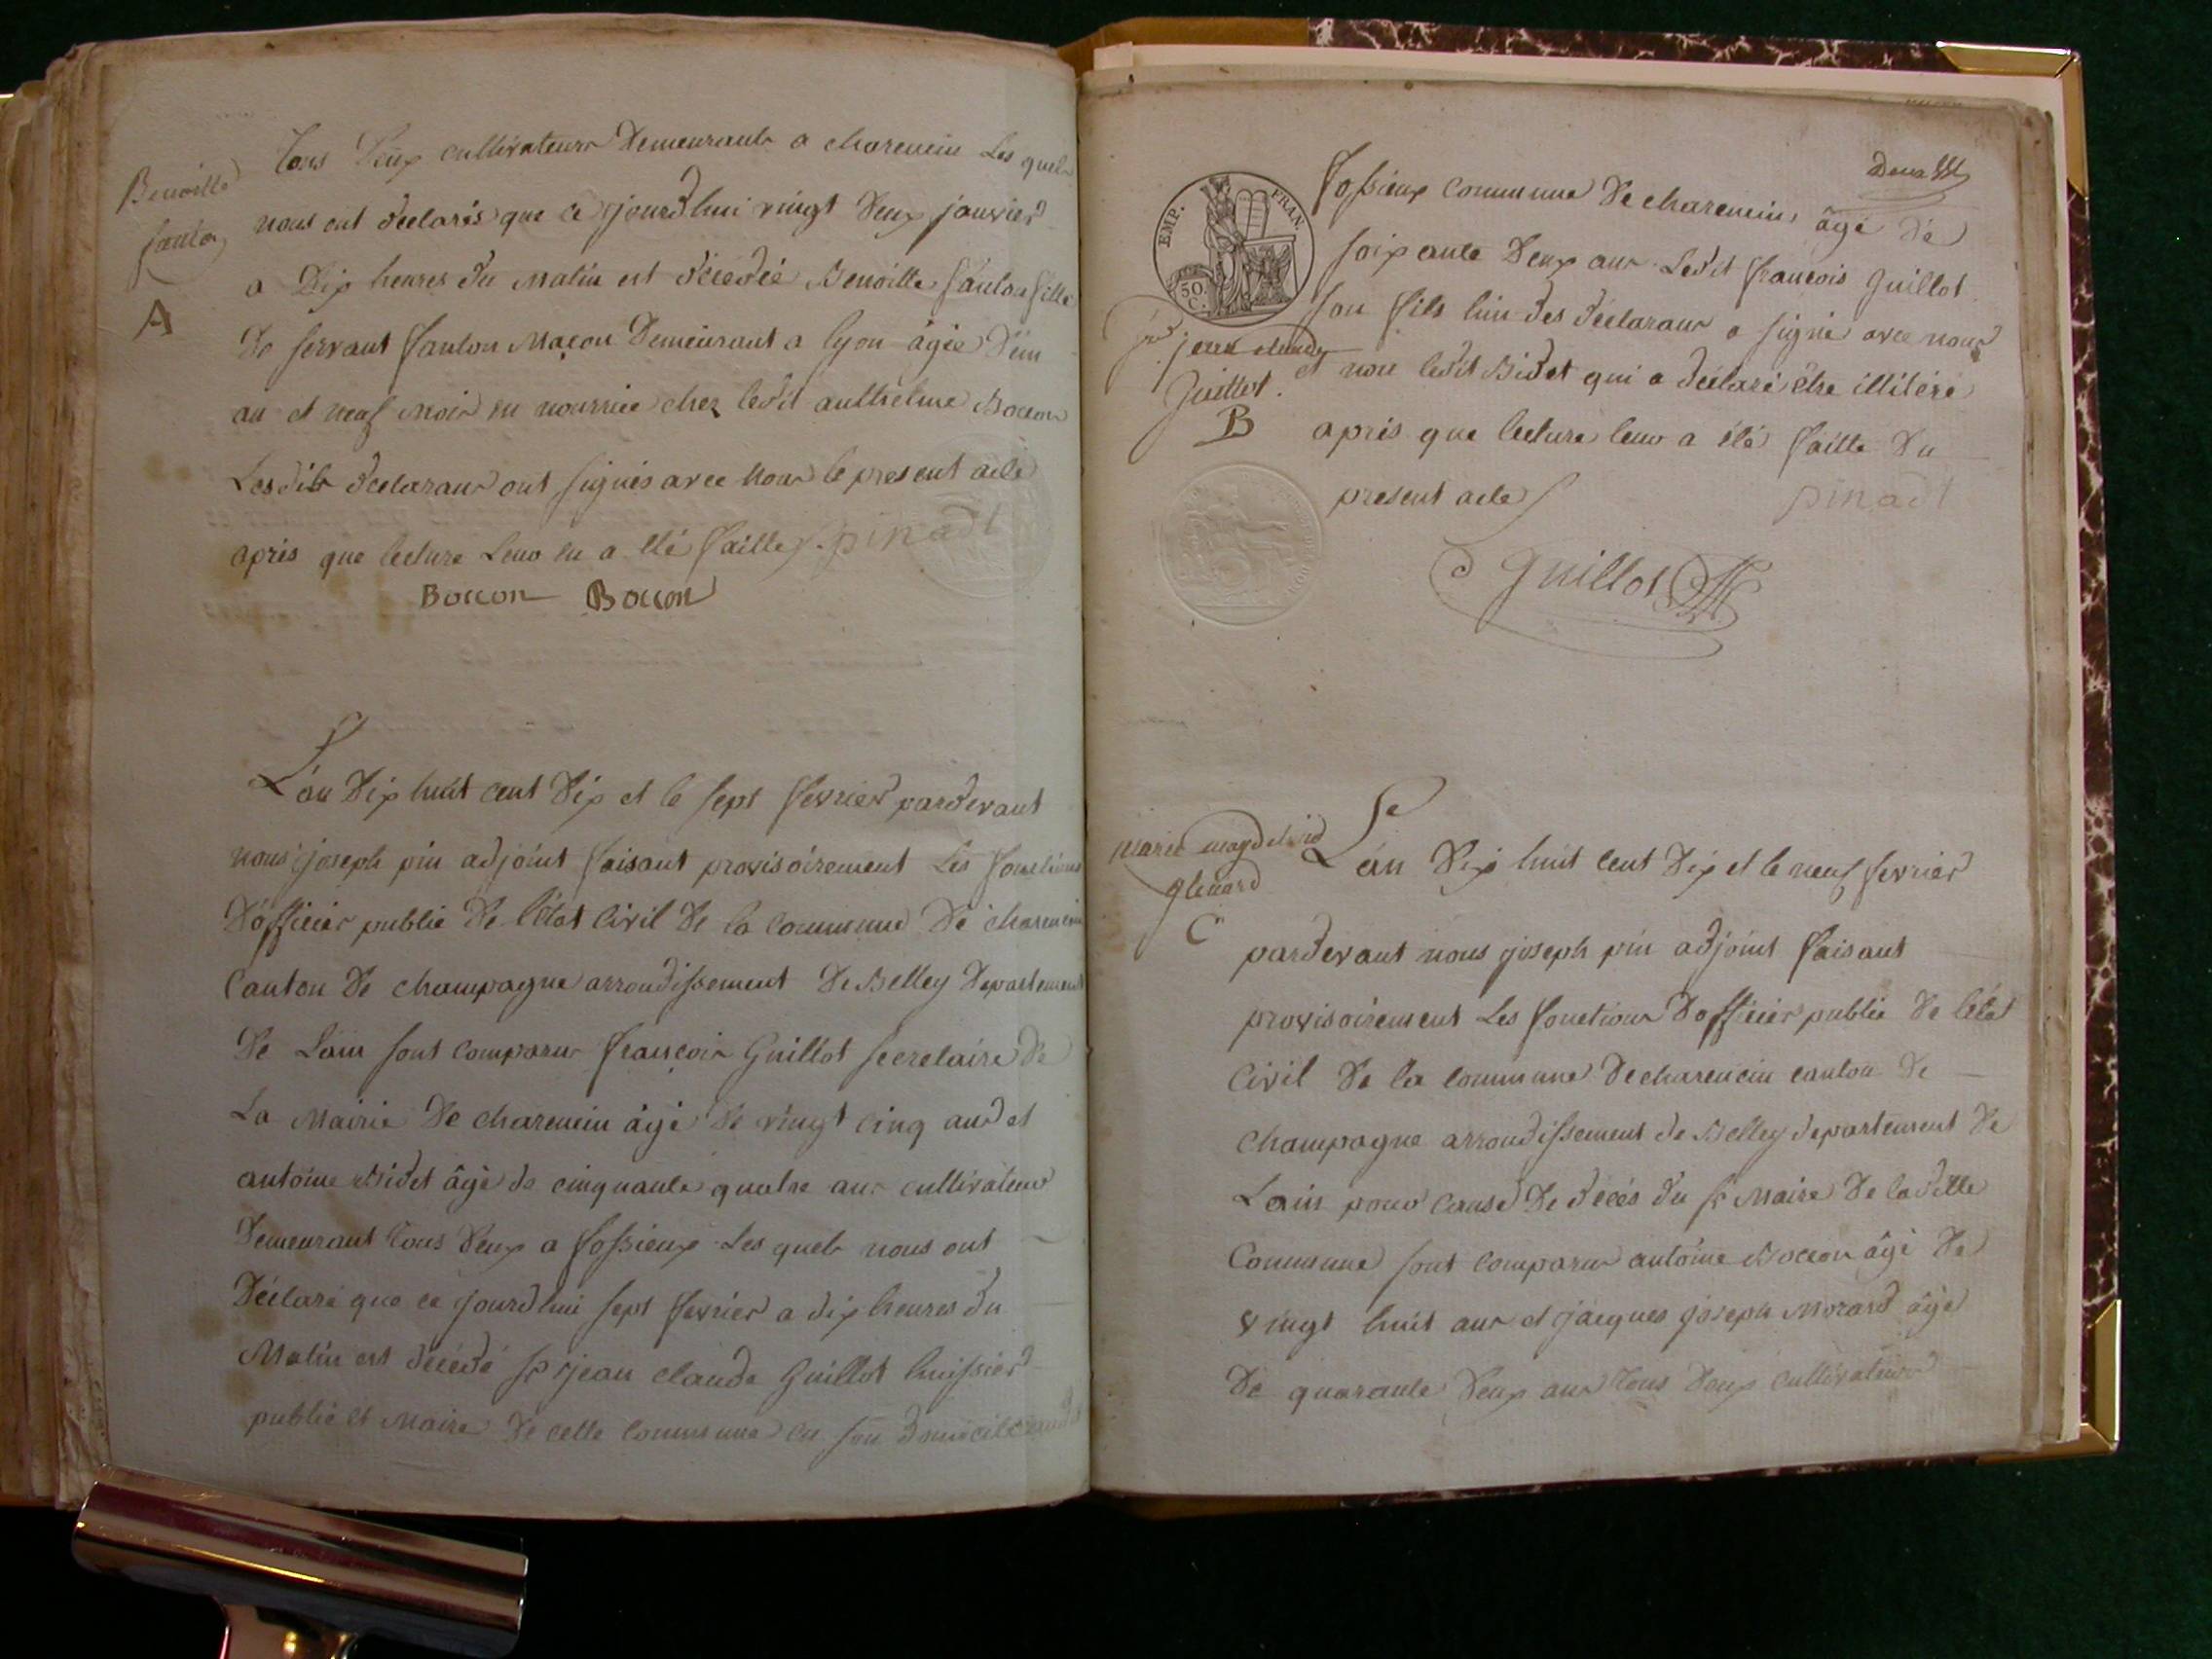 Benoitte
fanton
A
Tous deux cultivateurs demeurants a charencin Les quels
nous ont déclarés que ce jourdhui vingt deux janvier
a Dix heures du Matin est décédée Benoitte fanton fille
de servant fanton Maçon demeurant a lyon âgée d'un
an et neuf mois en nourrice chez ledit anthelme Boccon
Lesdits déclarans ont signés avec nous le present acte
après que lecture leur en a été faitte. pin adt
Boccon Boccon
L'an dix huit cent dix et le sept fevrier pardevant
nous joseph pin adjoint faisant provisoirement Les fonctions
D'officier public de l'état Civil de la commune de charencin
Canton de champagne arrondissement de Belley departement
de Lain sont comparus françois Guillot secretaire de
La Mairie de charencin âgé de vingt cinq ans et
antoine Bidet âgé de cinquante quatre ans cultivateur
demeurant tous deux a fossieux Les quels nous ont
Déclaré que ce jourdhui sept fevrier a dix heures du
Matin est décédé sr jean claude Guillot huissier
public et Maire de cette commune en son domicile
EMP. FRAN.
50. C.
jean claude
Guillot.
B
fossieux commune de charencin, âgé de
soixante deux ans Ledit françois Guillot
son fils l'un des déclarans a signé avec nous
et non ledit Bidet qui a déclaré être illitéré
après que lecture leur a été faitte du
present acte pin adt
Guillot
marie magdeleine
C
L'an dix huit cent dix et le neuf fevrier
pardevant nous joseph pin adjoint faisant
provisoirement Les fonctions d'officier public de l'état
Civil de la commune de charencin canton de
Champagne arrondissement de Belley departement de
Lain pour cause de décés du sr Maire de laditte
Commune sont comparus antoine Boccon âgé de
vingt huit ans et jacques joseph Morard âgé
de quarante deux ans tous deux cultivateurs